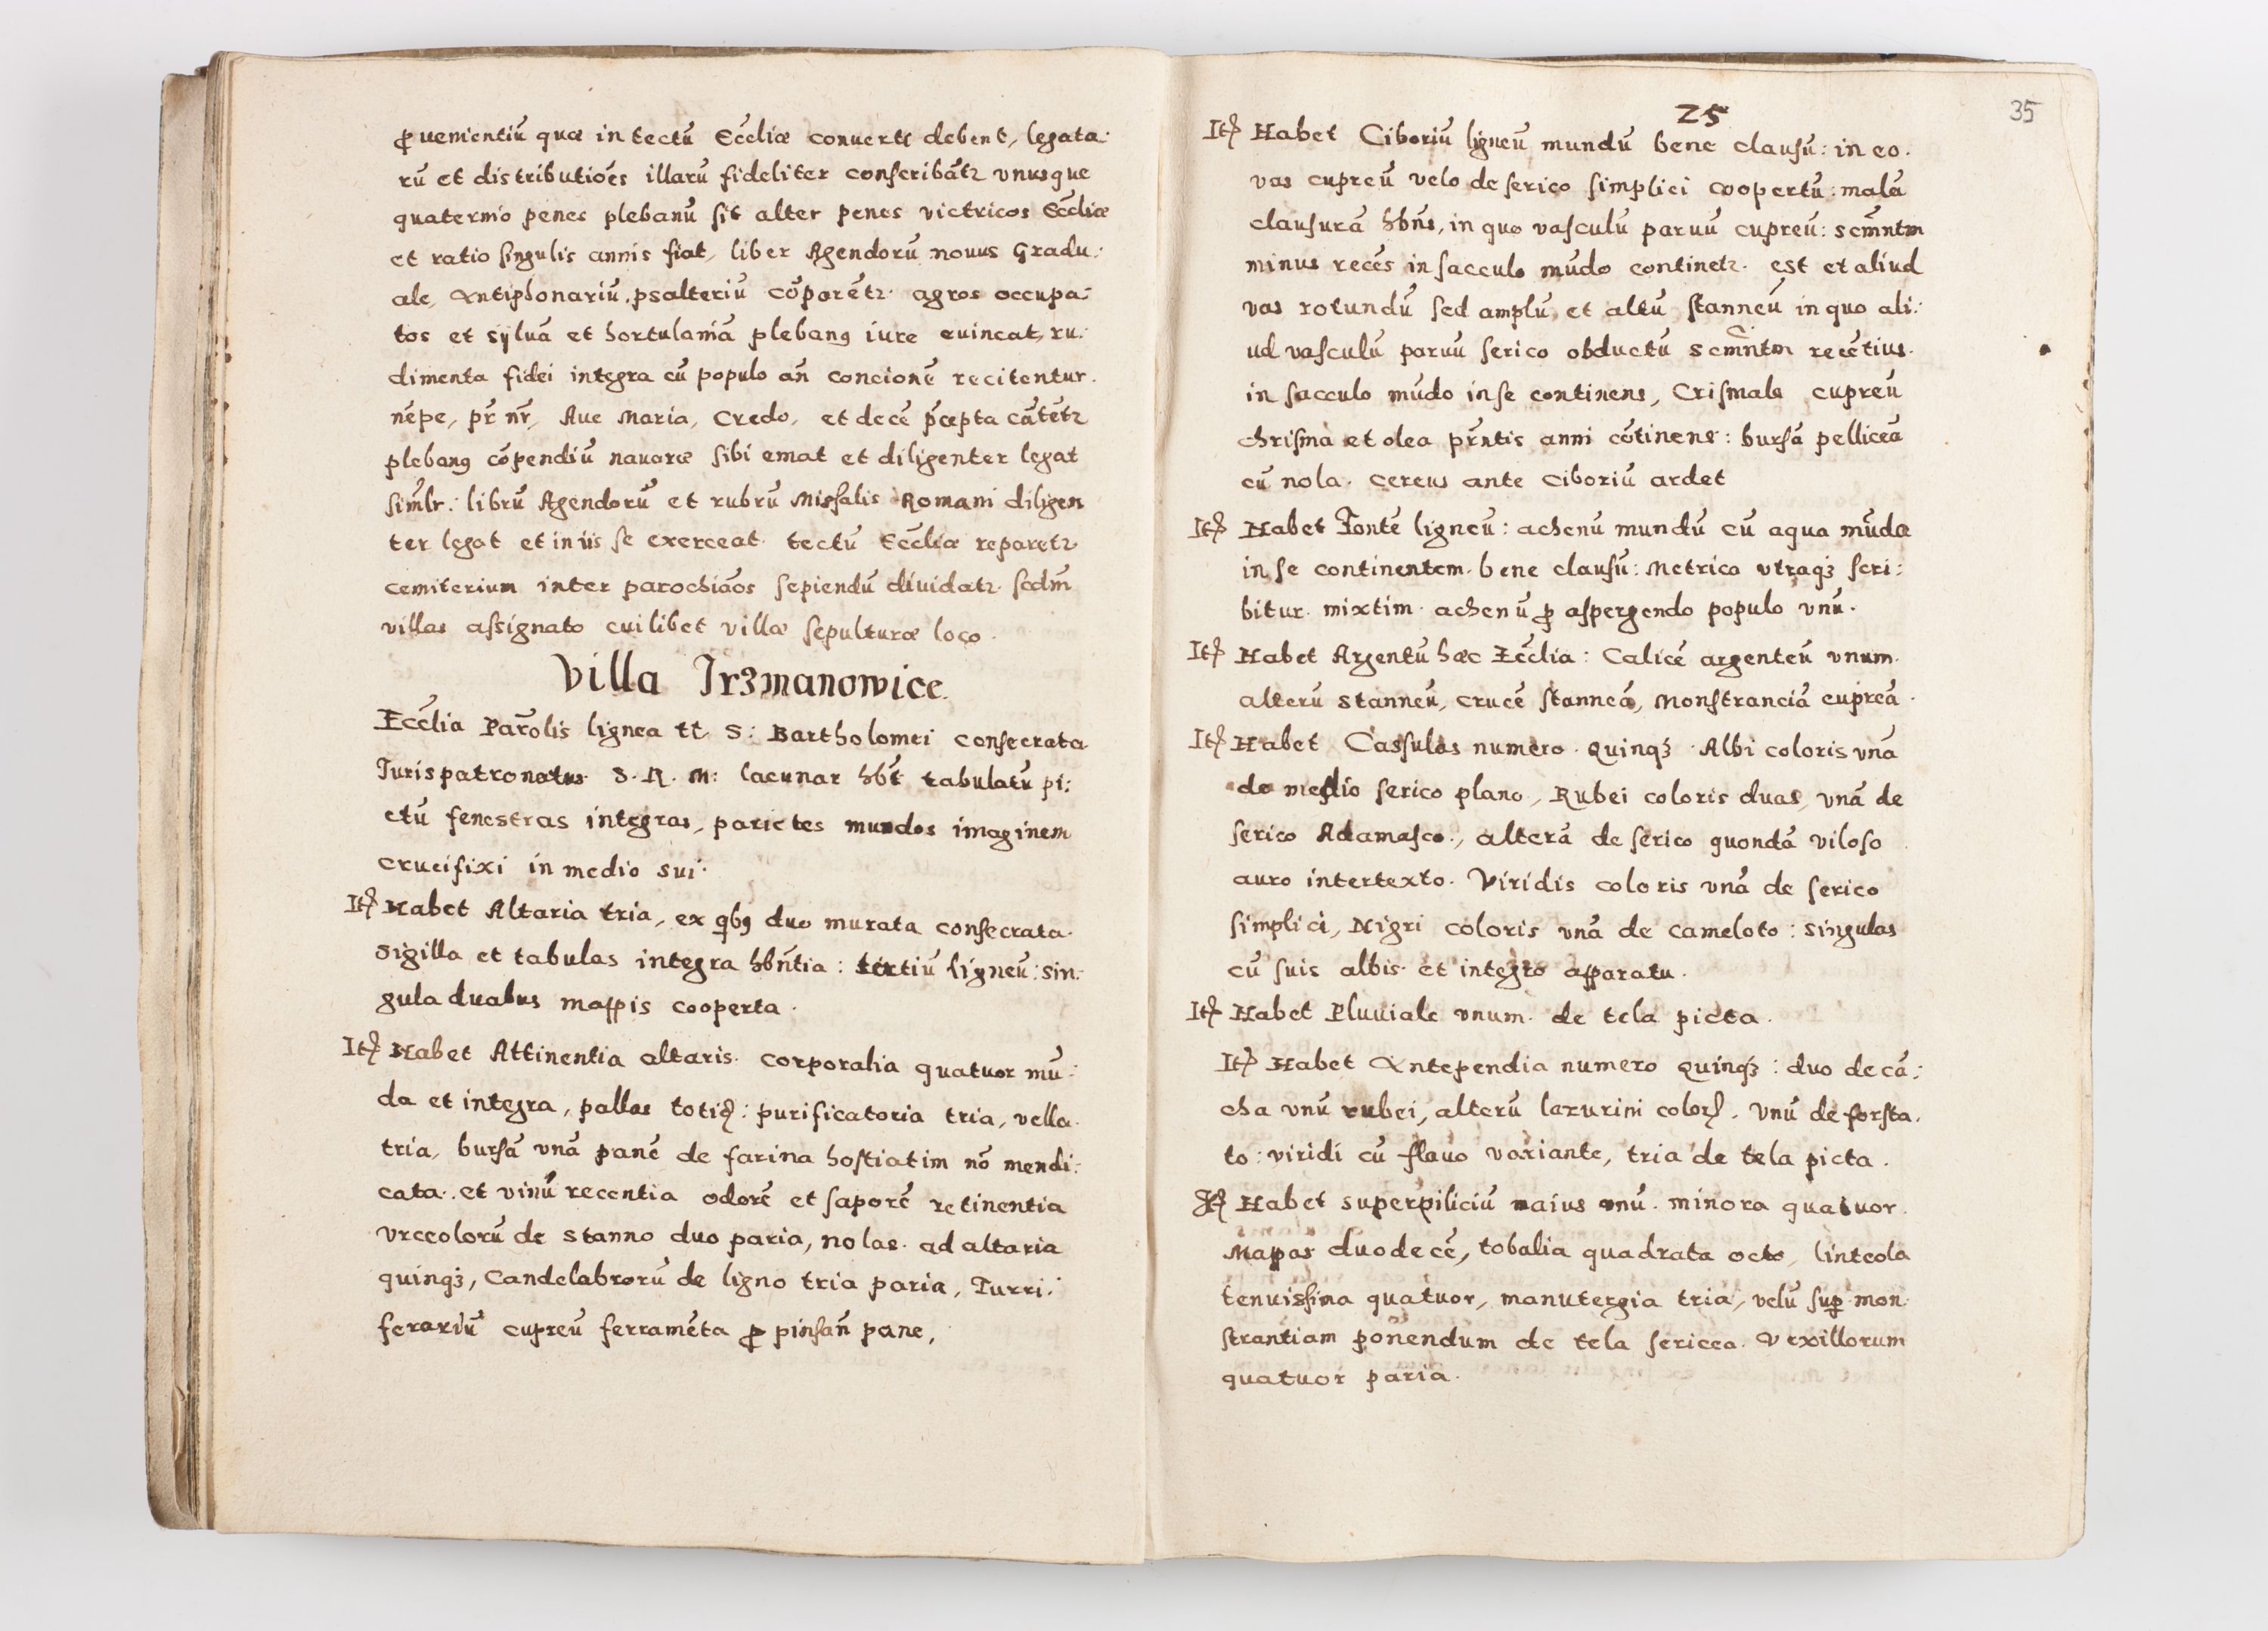 ꝓuenientiū quæ in tectū Eccliæ conuerti debent, legata:
rū et distributiões illarū fideliter conscribātr vnusque
quaternio penes plebanū sit alter penes victricos Eccliæ
et ratio singulis annis fiat, liber Agendorū nouus Gradu:
ale, Antiphonariū, psalteriū cōparētr. agros occupa:
tos et syluā et hortulaniā plebanꝰ iure euincat, ru:
dimenta fidei integra cū populo añ concionē recitentur.
nēpe, pr̄ nr̄, Aue Maria, Credo, et decē p̄cepta cātētr
plebanꝰ cōpendiū nauaræ sibi emat et diligenter legat
simlr: librū Agendorū et rubrū Missalis Romani diligen
ter legat et in iis se exerceat. tectū Eccliæ reparetr
cemiterium inter parochiāos sepiendū diuidatr. scdm̄
villas assignato cuilibet villæ sepulturæ loco.
Villa Jrzmanowice.
Ecclia Parōlis lignea tt. S: Bartholomei consecrata
Jurispatronatus S. R. M: lacunar hb̄t tabulatū pi:
ctū fenestras integras, parietes mundos imaginem
crucifixi in medio sui.
Itꝫ Habet Altaria tria, ex qbꝰ duo murata consecrata.
sigilla et tabulas integra hbn̄tia: tertiū ligneū: sin:
gula duabus mappis cooperta.
Itꝫ Habet Attinentia altaris. corporalia quatuor mū:
da et integra, pallas totiꝫ: purificatoria tria, vella.
tria, bursā vnā panē de farina hostiatim nō mendi:
cata. et vinū recentia odorē et saporē retinentia
vrceolorū de stanno duo paria, nolas. ad altaria
quinqꝫ, Candelabrorū de ligno tria paria, Turri:
ferariū cupreū ferramēta ꝓ pinsañ pane,
25
35
Itꝫ Habet Ciboriū ligneū mundū bene clausū: in eo.
vas cupreū velo de serico simplici coopertū: malā
clausurā hbn̄s, in quo vasculū paruū cupreū: scmn̄tm
minus recēs in sacculo mūdo continetr. est et aliud
vas rotundū sed amplū et altū stanneū in quo ali:
ud vasculū paruū serico obductū scmn̄tm recētius.
in sacculo mūdo in se continens, Crismale cupreū
chrisma et olea prn̄tis anni cōtinens: bursā pelliceā
cū nola. cereus ante Ciboriū ardet
Itꝫ Habet Fontē ligneū: achenū mundū cū aqua mūda
in se continentem. bene clausū: Metrica vtraqꝫ scri:
bitur. mixtim. achenū ꝓ aspergendo populo vnū.
Itꝫ Habet Argentū hæc Ecclia: Calicē argenteū vnum.
alterū stanneū, crucē stanneā, Monstranciā cupreā.
Itꝫ Habet Cassulas numero. quinqꝫ. Albi coloris vnā
de medio serico plano, Rubei coloris duas, vnā de
serico Adamasco., alterā de serico quondā viloso
auro intertexto. Viridis coloris vnā de serico
simplici, Nigri coloris vnā de cameloto: singulas
cū suis albis. et integro apparatu.
Itꝫ Habet Pluuiale vnum. de tela picta.
Itꝫ Habet Antependia numero quinqꝫ: duo de cā:
cha vnū rubei, alterū lazurini colorꝭ. Vnū de forsta.
to: viridi cū flauo variante, tria de tela picta.
Itꝫ Habet superpiliciū maius vnū. minora quatuor.
Mapas duodecē, tobalia quadrata octo, linteola
tenuissima quatuor, manutergia tria, velū sup̱ mon.
strantiam ponendum de tela sericea. Vexillorum
quatuor paria.